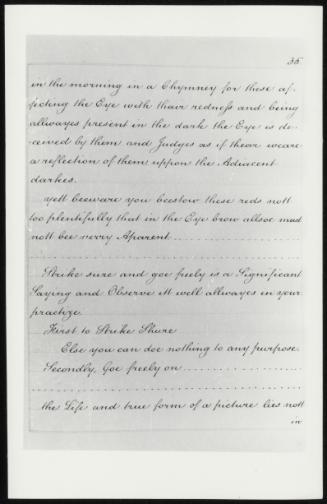 35
in the morning in a Chymney for these af,
fecting the Eye with thair redness and being
allwayes present in the dark the Eye is de,
ceived by them and Judges as if theor weare
a reflection of them uppon the Adiacent
darkes.
yett beeware you beestow these reds nott
too plentifully that in the Eye brow allsoe must
nott bee verry Aparent
Strike sure and goe freely is a Significant
Saying and Observe itt well allwayes in your
practize
First to Strike Shure
Else you can doe nothing to any purpose.
Secondly, Goe freely on
the Life and true form of a picture lies nott
in